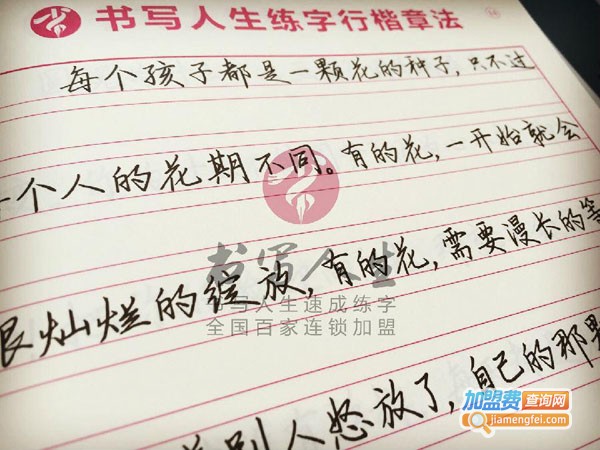 书写人生练字行楷章法
每个孩子都是一颗花的种子，只不过
个人的花期不同。有的花，一开始就会
灿烂的绽放，有的花，需要漫长的等
书写人生
书写人生速成练字
全国百家连锁加盟
别人怒放了，自己的那
加盟费查询网
jiamengfei.com